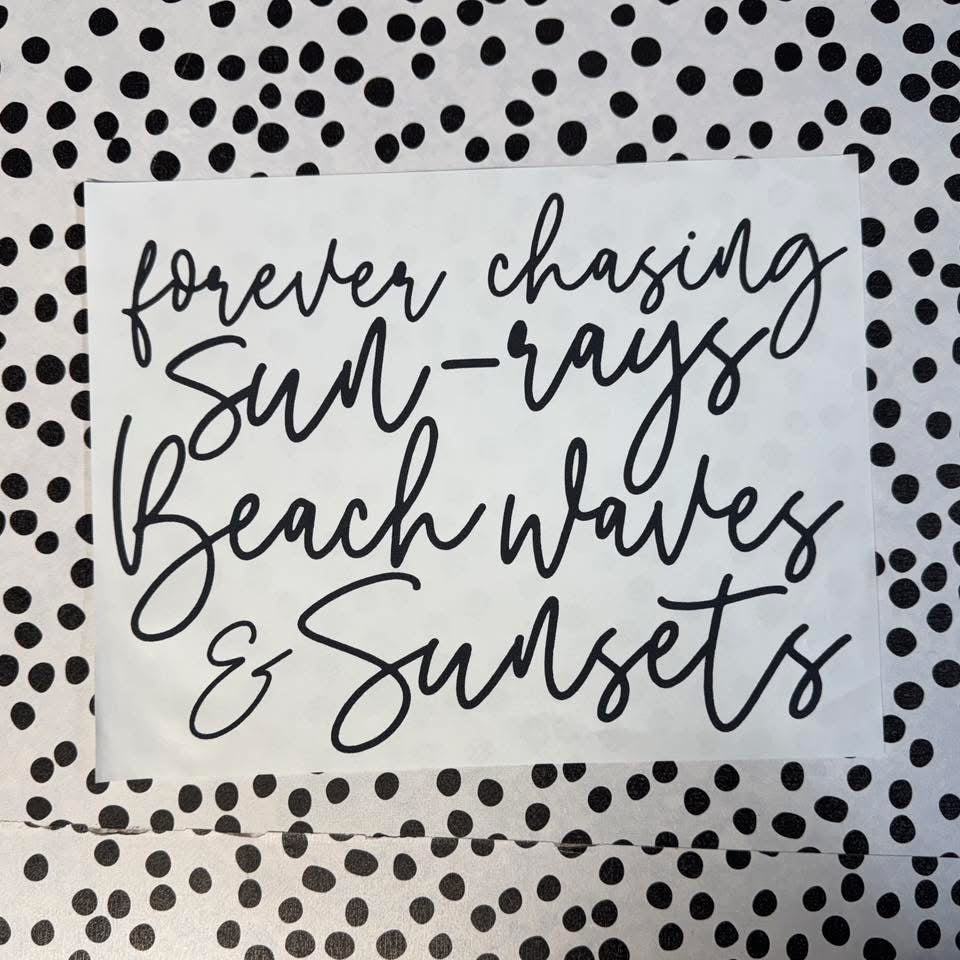 forever chasing
Sun-rays
Beach waves
& Sunsets